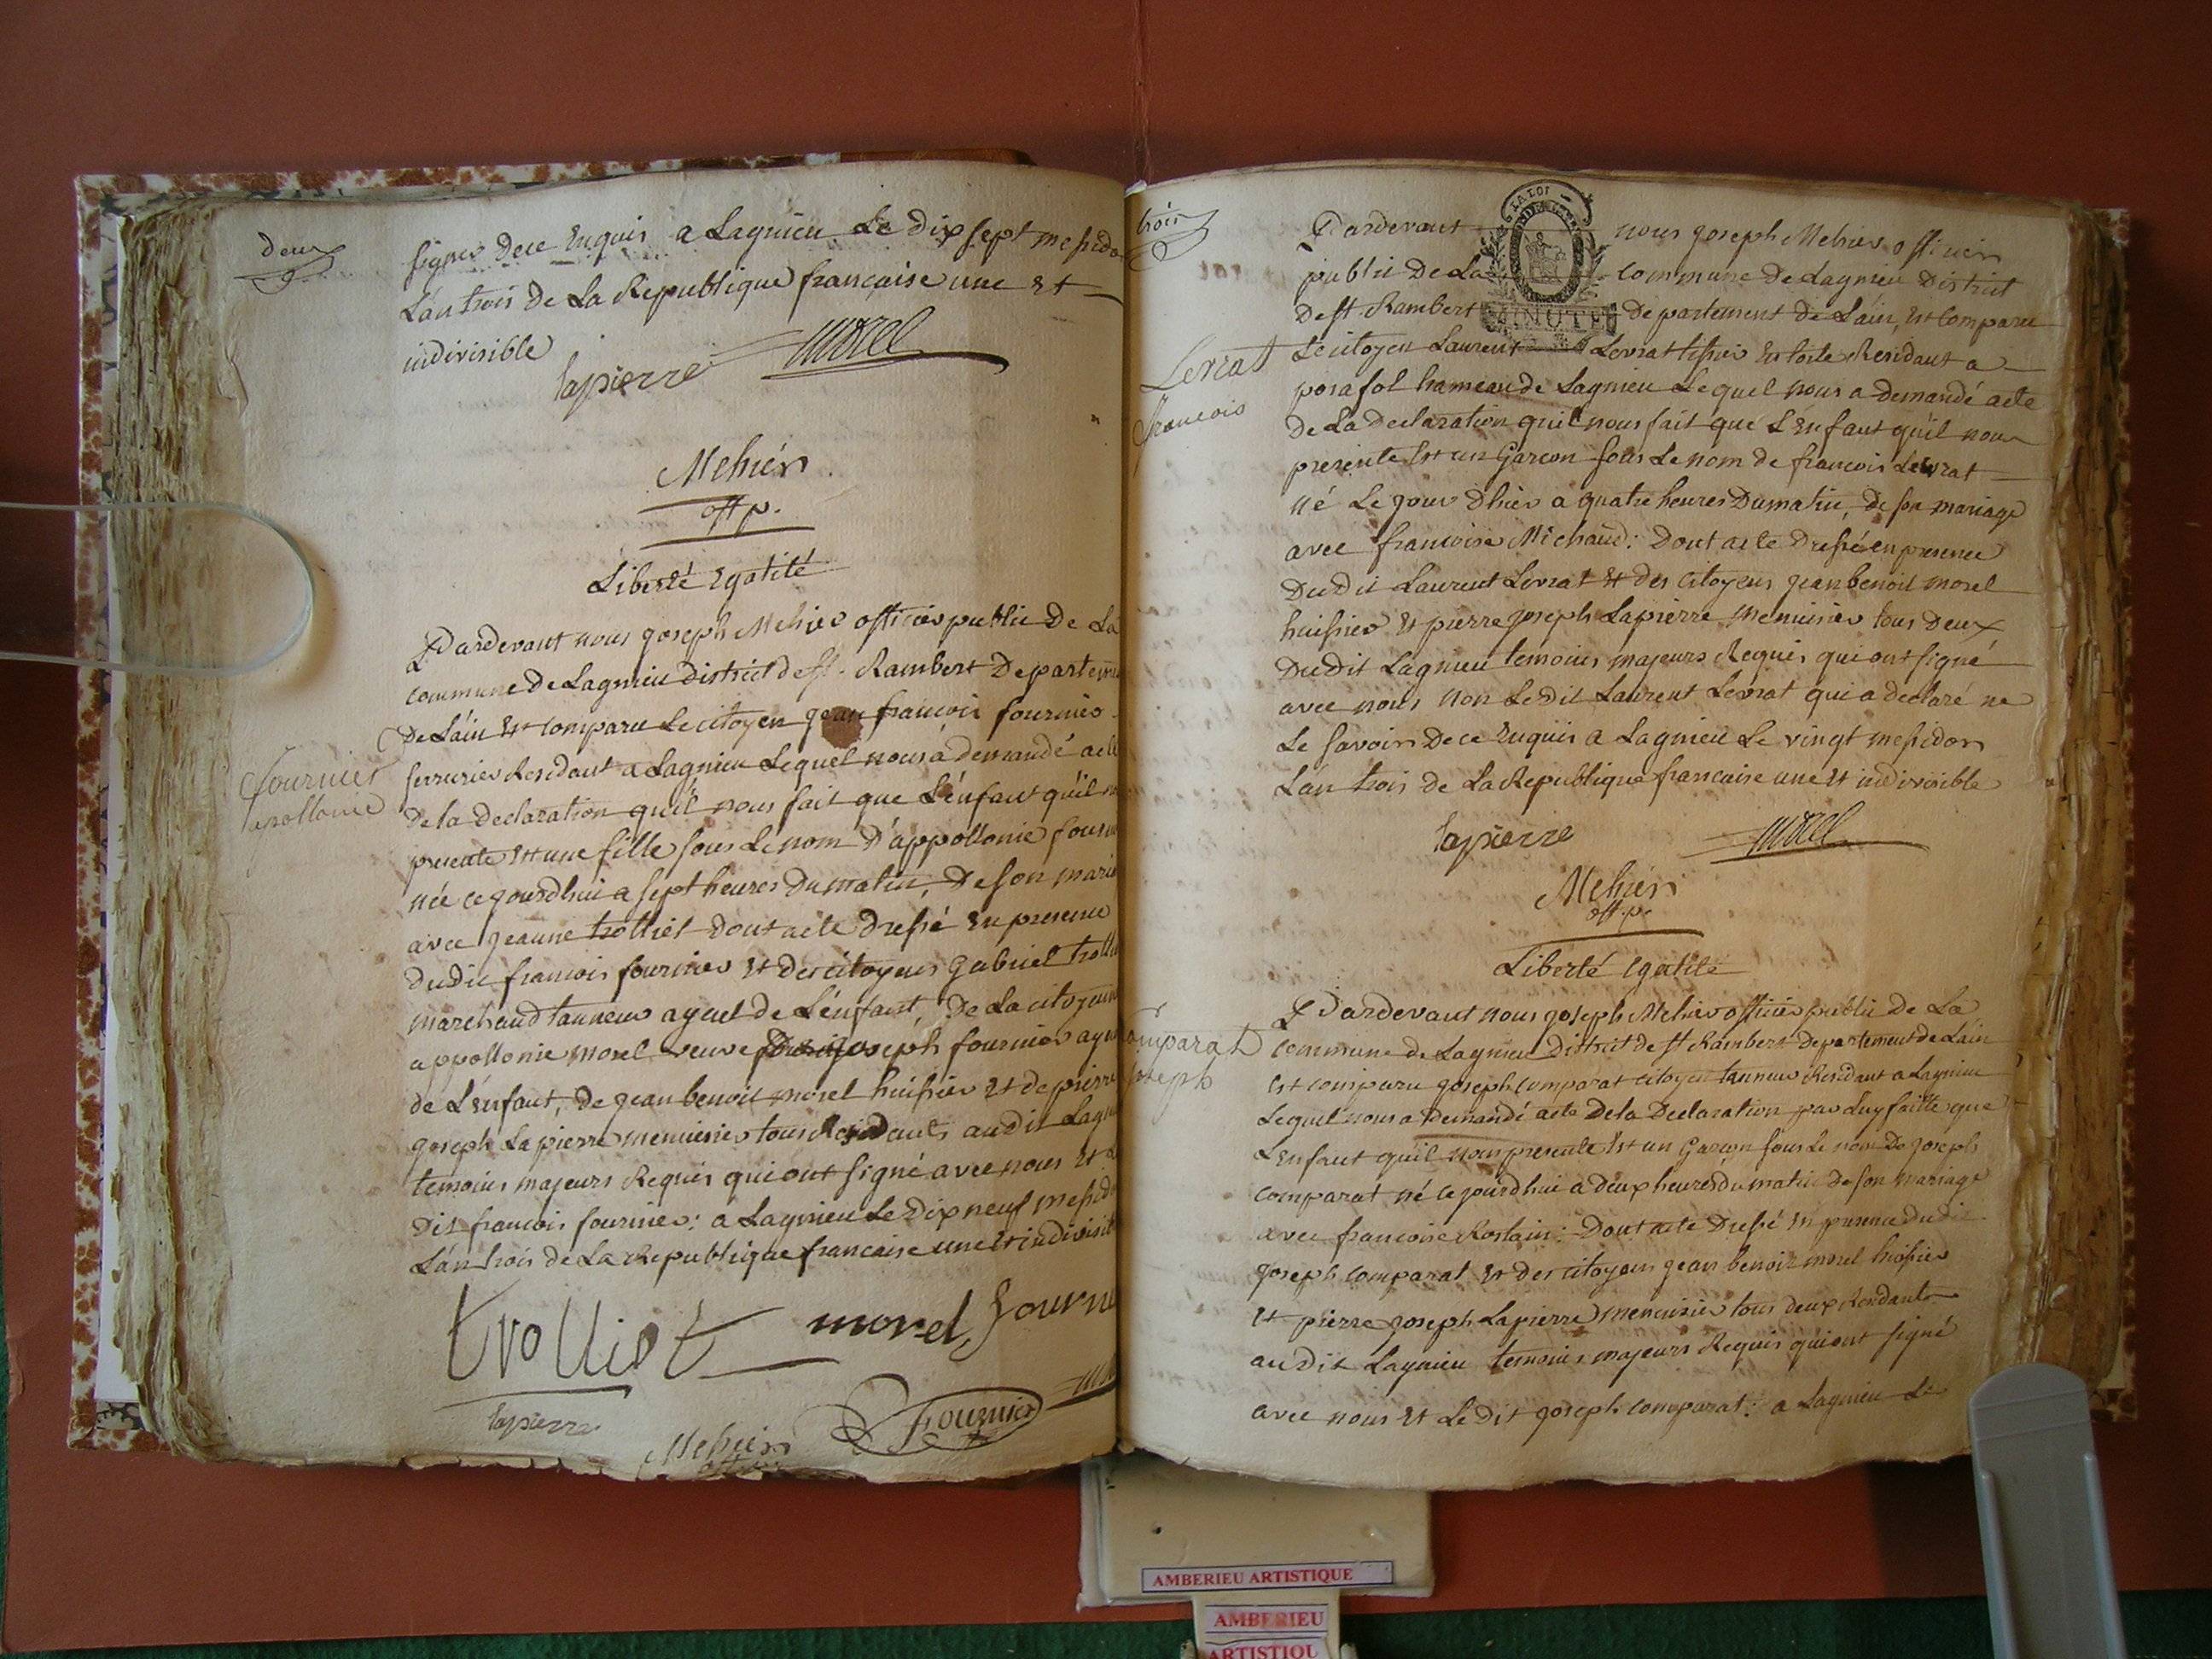 deux
signer de ce enquis a Lagnieu Le dix sept messido
L'an trois de La Republique française une et
indivisible
lapierre morel
Mehier
off p.
Liberté Egalité
Pardevant nous joseph Mehier officier public De La
commune De Lagnieu district de st. Rambert Departeme
De L'ain Est comparu Le citoyen jean francois fournier
fournier
apollonie
serrurier Residant a Lagnieu Lequel nous a demandé acte
de la declaration qu'il nous fait que L'enfant qu'il n
presente Est une fille sous Le nom D'appollonie fourn
née ce jourdhui a sept heures Du matin, De son maria
avec jeanne trolliet dont acte Dressé En presence
dudit francois fournier Et des citoyens gabriel troll
marchand tanneur ayeul de L'enfant, De La citoyenn
appollonie morel veuve joseph fournier aye
de L'enfant, de jean benoit morel huissier Et de pierre
joseph Lapierre menuisier tous Residants audit Lagn
temoins majeurs Requis qui ont signé avec nous Et L
dit francois fournier: a Lagnieu Le Dix neuf messido
L'an trois de La Republique francaise une Et indivisib
trolliet morel fourni
lapierre Mehier fournier
trois
LA LOI
MINUTE
Pardevant nous joseph Mehier officier
public De La commune de Lagnieu District
De st. Rambert Departement de L'ain, Est Comparu
Levrat
francois
Le citoyen Laurent Levrat tissier En toile Residant a
posafol hameau de Lagnieu Lequel nous a demandé acte
De La declaration qu'il nous fait que L'enfant qu'il nous
presente Est un Garcon sous Le nom de francois Levrat
né Le jour D'hier a quatre heures Du matin, de son mariage
avec francoise Michaud: Dont acte Dressé en presence
Du Dit Laurent Levrat Et des citoyens jean benoit morel
huissier Et pierre joseph Lapierre menuisier tous Deux
Du Dit Lagnieu temoins majeurs Requis qui ont signé
avec nous non Le Dit Laurent Levrat qui a declaré ne
Le savoir De ce Enquis a Lagnieu Le vingt messidor
L'an trois de La Republique francaise une Et indivisible
lapierre morel
Mehier
off. p.
Liberté Egalité
Pardevant nous joseph Mehier officier public de La
omparat
oseph
commune de Lagnieu District de st Rambert Departement de L'ain
Est comparu joseph comparat citoyen tanneur Residant a Lagnieu
Lequel nous a Demandé acte De la Declaration par Luy faitte que
L'enfant qu'il nous presente Est un Garçon sous Le nom De joseph
comparat né ce jourd'hui a Deux heures du matin De son mariage
avec francoise Rostain: Dont acte Dressé En presence du dit
joseph comparat Et des citoyens jean benoit morel huissier
Et pierre joseph Lapierre menuisier tous deux Residants
au dit Lagnieu temoins majeurs Requis qui ont signé
avec nous Et Le Dit joseph comparat: a Lagnieu Le
AMBERIEU ARTISTIQUE
AMBERIEU
ARTISTIQU